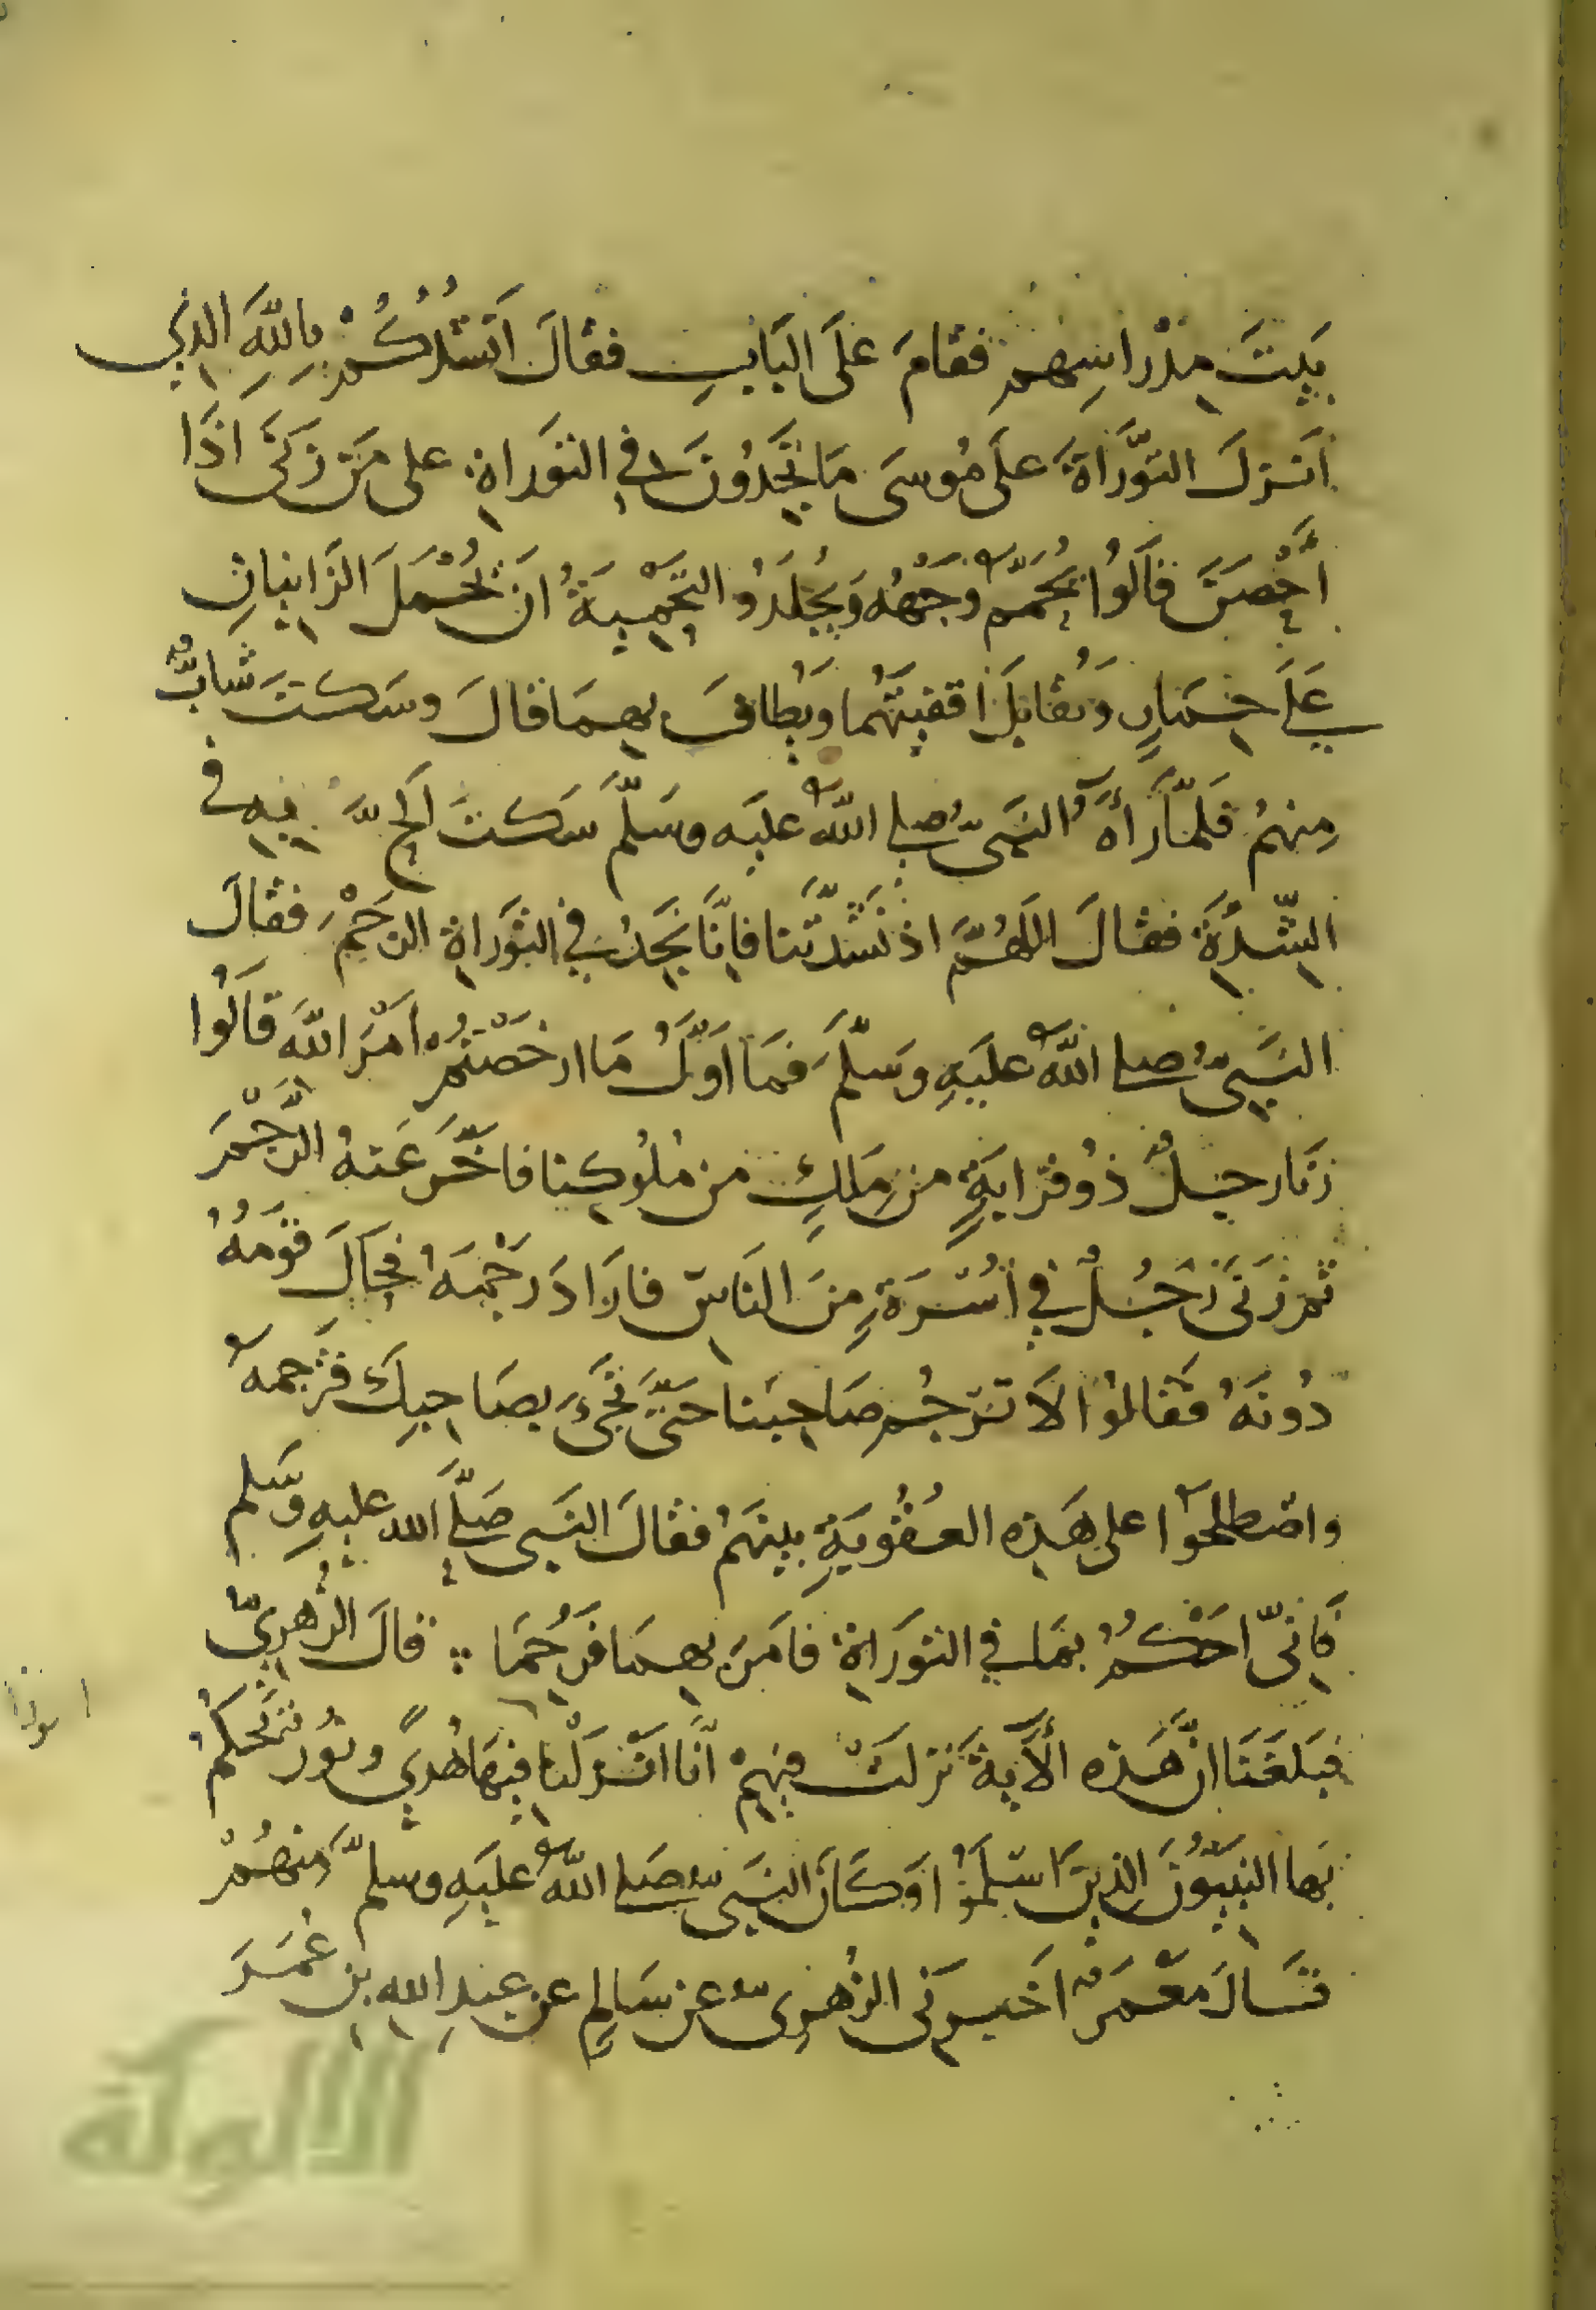 بَيتَ مِدْرَاسِهِم فقامَ عَلَى البَابِ فقالَ انشُدُكُمْ بِاللَّهِ الذِي
اَنزلَ التوَّرَاةَ عَلَى مُوسَى مَا تَجِدُونَ في التوَراةِ على مَن زنَى اذَا
اُحْصِنَ قالَوُا يُحَمَّمُ وَجهُه وَيُجْلَدُ التَجْبِيَةُ اَن يُحْمَلَ الزَانِيانِ
عَلَى حِمَارٍ وَتُقَابَلَ اقفِيَتُهُما وَيُطافَ بِهِمَا قالَ وسَكتَ شَابٌّ
مِنهُم فَلمّا رَأهُ النَبىُّ صلى اللَّه عليَه وسَلّمَ سَكتَ الحَّ فِيهِ فى
النِّشْدَةَ فقالَ اللَّهُمَّ اذ نَشَدْتَنا فَاِنَّا نَجِدُ في التوَرَاةِ الرَجْمَ فقالَ
النَبىُّ صلى اللَّه عليَهِ وسَلَّمَ فَمَا اَوَّلُ مَا ارخَصْتُمْ اَمْرَ اللَّهِ قَالوُا
زنَا رجلٌ ذُو قرَابَةٍ من مَلِكٍ من مُلُوكِنا فاخَّرَ عَنهُ الرَّجْمَ
ثم زَنَى رَجُلٌ في اُسْرَةٍ مِنَ النَاسِ فارَادَ رَجْمَهُ فحَالَ قوَمُهُ
دُونَهُ فقَالوُا لاَ تَرْجُم صَاحِبَنا حَتَّى تَجىَ بصَاحِبِكَ فَتَرْجمه
واصْطلَحُوا على هَذِه العُقُوبَةِ بينَهُم فقالَ النَبى صَلَّى الله عليهِ وسَلم
فَانِّى احْكُمُ بمَا في التوَرَاةِ فامَرَ بِهِمَا فرُجِمَا : قالَ الزُهرِيُّ
فبَلغَنَا انَّ هَذِه الأيَةَ نزلتْ فِيهِمْ انَّا انْزَلْنا فِيهَا هُدىً ونُورٌ يَحكُمُ
بَها النَبِيّوُنَ الذِينَ اسْلَمُوْا وَكَانَ النَبىُّ صَلى اللَّه عليَهِ وسلمَّ مِنهُمْ
قَالَ مَعْمَرٌ اخبرَنى الزُهرِىُّ عن سَالِمٍ عن عبدِ اللهِ بنِ عُمَرَ
الألوكة